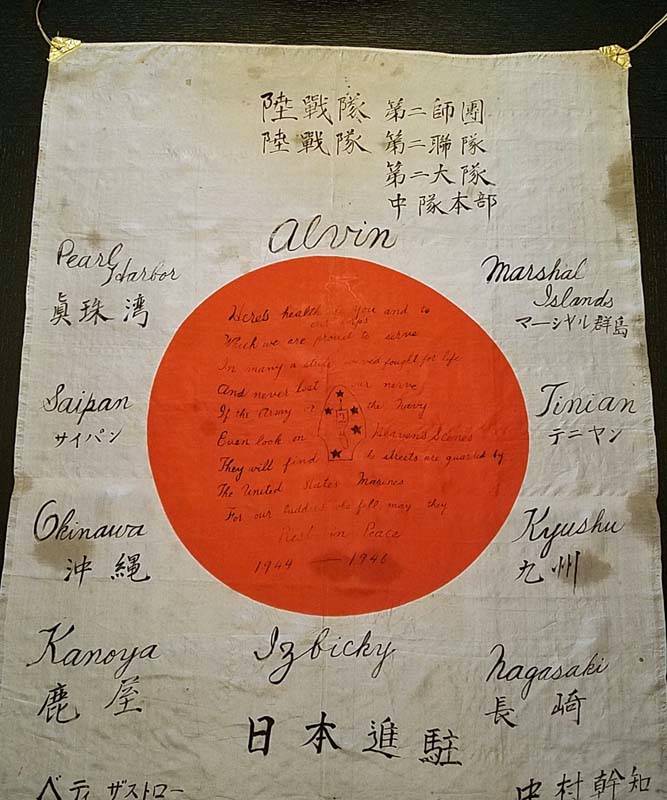 陸戰隊 第二師團
陸戰隊 第二聯隊
第二大隊
中隊本部
Alvin
Pearl Harbor
眞珠湾
Marshal Islands
マーシャル群島
Saipan
サイパン
Tinian
テニヤン
Okinawa
沖縄
Kyushu
九州
Kanoya
鹿屋
Izbicky
Nagasaki
長崎
日本進駐
ベティ ザストロー
中村幹知
Here's health to you and to
our Corps
Which we are proud to serve
In many a strife we've fought for life
And never lost our nerve
If the Army & the Navy
Even look on Heaven's Scenes
They will find streets are guarded by
The United States Marines
For our buddies who fell may they
Rest in Peace
1944 — 1946